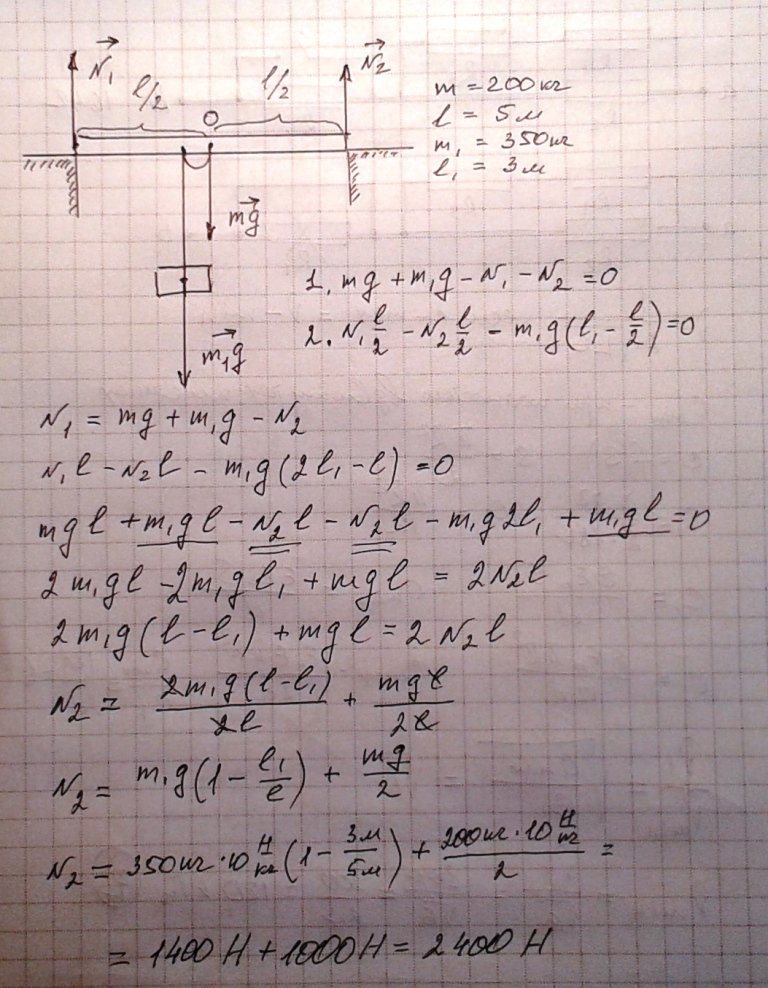 N₁
N₂
l/2
l/2
O
m = 200 кг
l = 5 м
m₁ = 350 кг
l₁ = 3 м
mg
m₁g
1. mg + m₁g - N₁ - N₂ = 0
2. N₁ l/2 - N₂ l/2 - m₁g(l₁ - l/2) = 0
N₁ = mg + m₁g - N₂
N₁l - N₂l - m₁g(2l₁ - l) = 0
mgl + m₁gl - N₂l - N₂l - m₁g2l₁ + m₁gl = 0
2m₁gl - 2m₁gl₁ + mgl = 2N₂l
2m₁g(l - l₁) + mgl = 2N₂l
N₂ = 2m₁g(l - l₁)/2l + mgl/2l
N₂ = m₁g(1 - l₁/l) + mg/2
N₂ = 350 кг · 10 Н/кг (1 - 3м/5м) + 200 кг · 10 Н/кг / 2 =
= 1400 Н + 1000 Н = 2400 Н